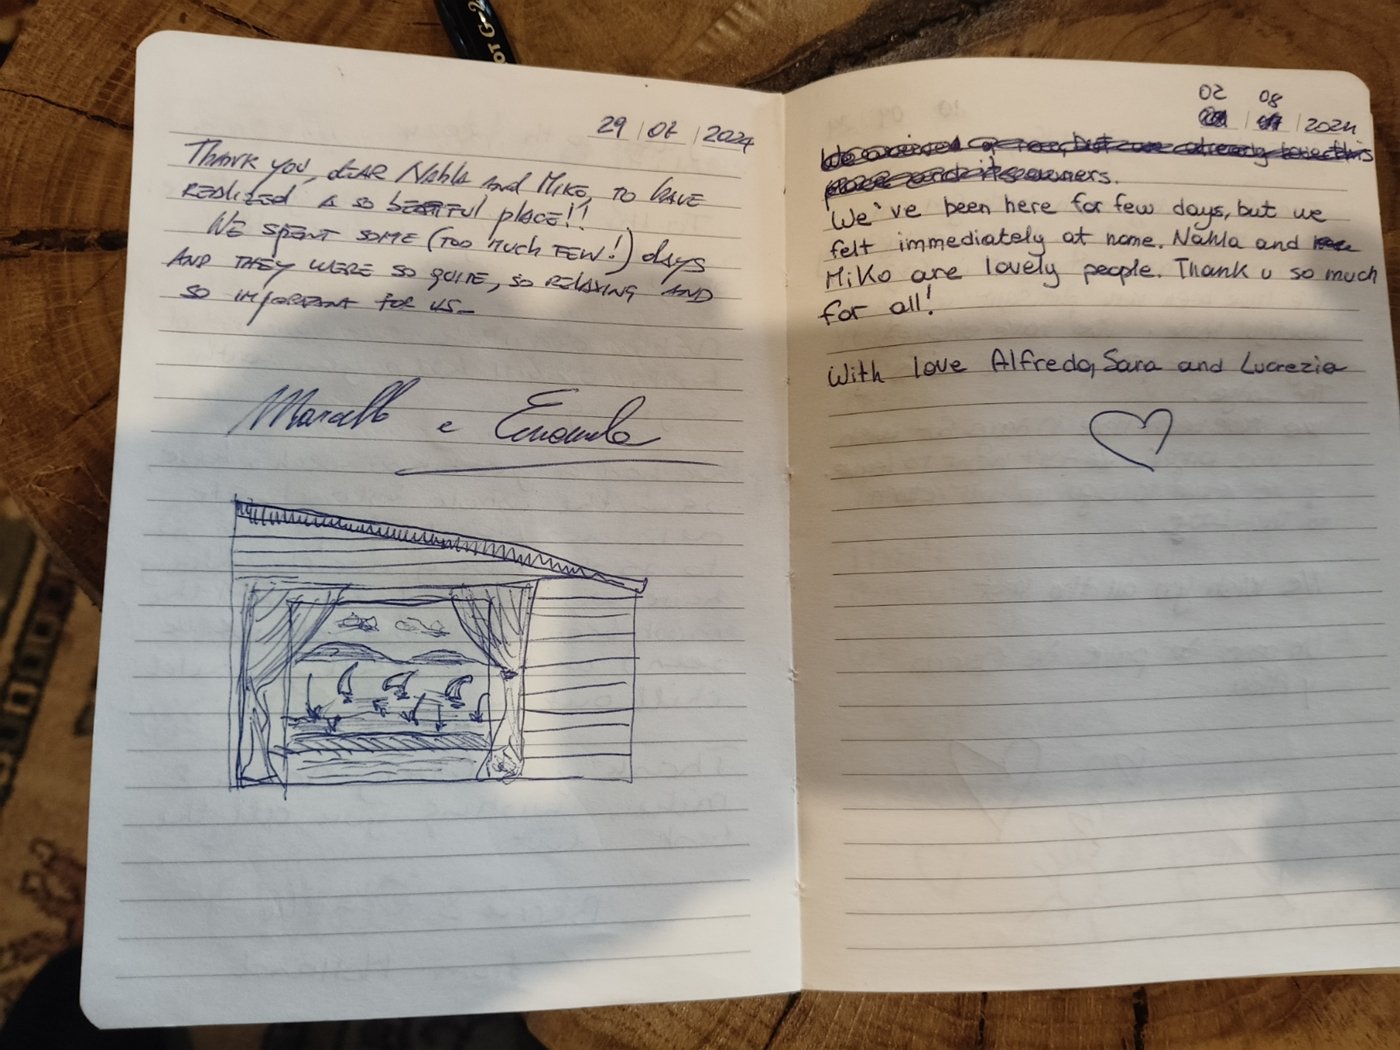 OR G-2
29 | 07 | 2024
THANK YOU, DEAR Nahla and MIKE, TO HAVE
REALIZED A SO BEATIFUL PLACE!!
WE SPENT SOME (TOO MUCH FEW!) days
AND THEY WERE SO QUITE, SO RELAXING AND
SO IMPORTANT FOR US_
Marcello e Emanuela
02 08
2024
We arrived , but we already love this
place and its owners.
We've been here for few days, but we
felt immediately at home. Nahla and
Miko are lovely people. Thank u so much
for all!
With love Alfredo, Sara and Lucrezia